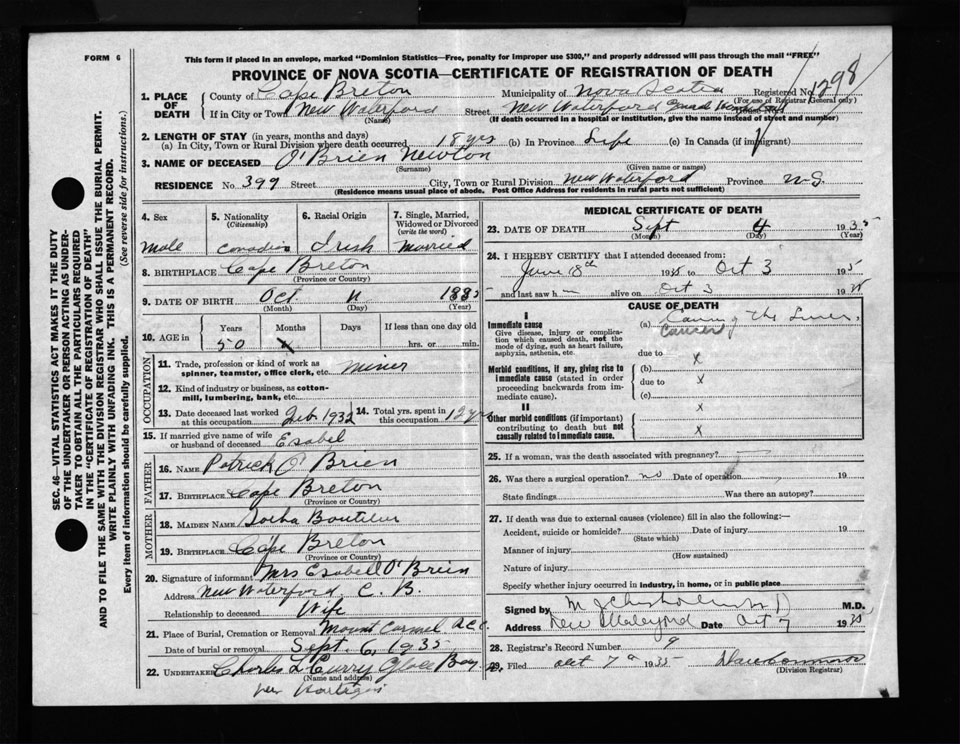 FORM 6
This form if placed in an envelope, marked "Dominion Statistics—Free, penalty for improper use $300," and properly addressed will pass through the mail "FREE"
PROVINCE OF NOVA SCOTIA—CERTIFICATE OF REGISTRATION OF DEATH
1298
1. PLACE OF DEATH
County of Cape Breton Municipality of Nova Scotia Registered No.
(For use of Registrar General only)
If in City or Town New Waterford Street New Waterford
(Name) (If death occurred in a hospital or institution, give the name instead of street and number)
2. LENGTH OF STAY (in years, months and days)
(a) In City, Town or Rural Division where death occurred 18 yrs (b) In Province Life (c) In Canada (if immigrant)
3. NAME OF DECEASED O'Brien Newton
(Surname) (Given name or names)
RESIDENCE No. 399 Street City, Town or Rural Division New Waterford Province N.S.
(Residence means usual place of abode. Post Office Address for residents in rural parts not sufficient)
SEC. 46—VITAL STATISTICS ACT MAKES IT THE DUTY
OF THE UNDERTAKER OR PERSON ACTING AS UNDER-
TAKER TO OBTAIN ALL THE PARTICULARS REQUIRED
IN THE "CERTIFICATE OF REGISTRATION OF DEATH"
AND TO FILE THE SAME WITH THE DIVISION REGISTRAR WHO SHALL ISSUE THE BURIAL PERMIT.
WRITE PLAINLY WITH UNFADING INK. THIS IS A PERMANENT RECORD.
Every item of information should be carefully supplied. (See reverse side for instructions.)
4. Sex 5. Nationality (Citizenship) 6. Racial Origin 7. Single, Married, Widowed or Divorced (write the word)
Male Canadian Irish Married
8. BIRTHPLACE Cape Breton
(Province or Country)
9. DATE OF BIRTH Oct 1885
(Month) (Day) (Year)
10. AGE in Years Months Days If less than one day old
50 x hrs. or min.
OCCUPATION
11. Trade, profession or kind of work as spinner, teamster, office clerk, etc. Miner
12. Kind of industry or business, as cotton-mill, lumbering, bank, etc.
13. Date deceased last worked at this occupation Feb 1932 14. Total yrs. spent in this occupation 12 yrs
15. If married give name of wife or husband of deceased Esabel
FATHER
16. NAME Patrick O'Brien
17. BIRTHPLACE Cape Breton
(Province or Country)
MOTHER
18. MAIDEN NAME
19. BIRTHPLACE Cape Breton
(Province or Country)
20. Signature of informant Mrs Esabell O'Brien
Address New Waterford, C. B.
Relationship to deceased Wife
21. Place of Burial, Cremation or Removal Mount Carmel
Date of burial or removal Sept. 6, 1935
22. UNDERTAKER Charles L Curry Glace Bay
(Name and address)
MEDICAL CERTIFICATE OF DEATH
23. DATE OF DEATH Sept 4 1935
(Month) (Day) (Year)
24. I HEREBY CERTIFY that I attended deceased from:
June 8th 1935 to Oct 3 1935
and last saw h alive on Oct 3 19
CAUSE OF DEATH
I
Immediate cause
Give disease, injury or complication which caused death, not the mode of dying, such as heart failure, asphyxia, asthenia, etc.
(a) of the Liver.
Cancer
due to x
Morbid conditions, if any, giving rise to immediate cause (stated in order proceeding backwards from immediate cause).
(b)
due to x
(c)
x
II
Other morbid conditions (if important) contributing to death but not causally related to immediate cause.
x
25. If a woman, was the death associated with pregnancy?
26. Was there a surgical operation? no Date of operation 19
State findings Was there an autopsy?
27. If death was due to external causes (violence) fill in also the following:—
Accident, suicide or homicide? Date of injury 19
(State which)
Manner of injury
(How sustained)
Nature of injury
Specify whether injury occurred in industry, in home, or in public place
Signed by M.D.
Address New Waterford Date Oct 7 1935
28. Registrar's Record Number 9
29. Filed Oct 7 1935
(Division Registrar)